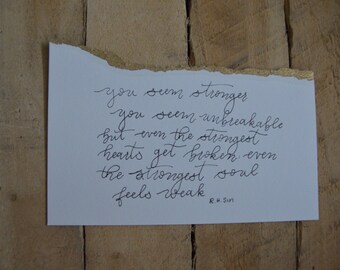 you seem stronger
you seem unbreakable
but even the strongest
hearts get broken. even
the strongest soul
feels weak R.H. Sin